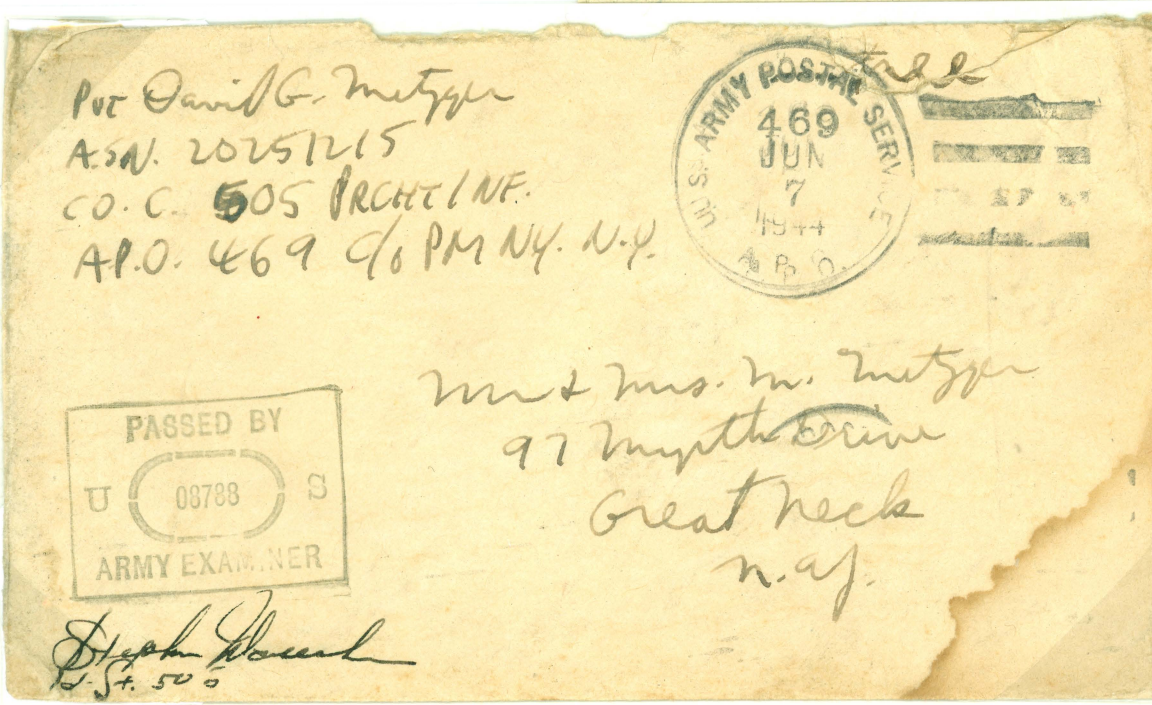 Pvt David G. Metzger
A.S.N. 20251215
CO. C. 505 PRCHT INF.
A.P.O. 469 c/o PM NY. N.Y.
Free
U.S. ARMY POSTAL SERVICE
469
JUN
7
1944
A.P.O.
Mr & Mrs. M. Metzger
97 Myrtle Drive
Great Neck
N.Y.
PASSED BY
U 08788 S
ARMY EXAMINER
Stephen
1st Lt. 505